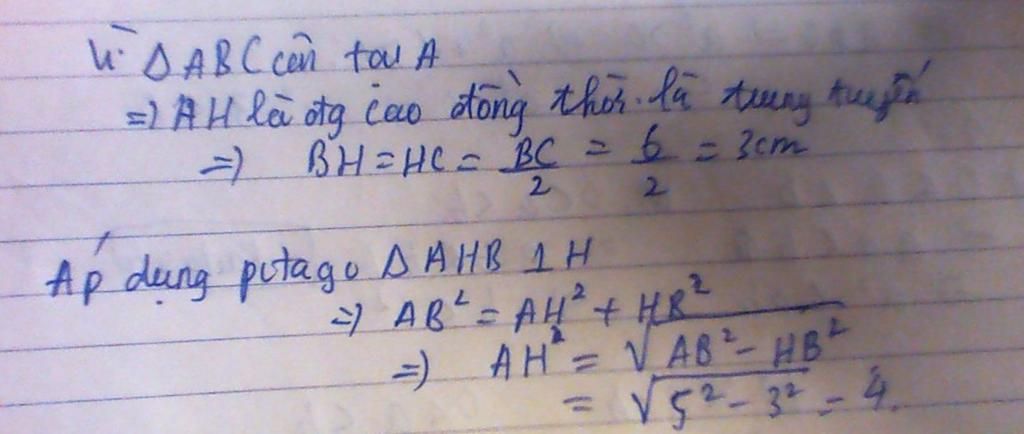 Vì Δ ABC cân tại A
=> AH là đg cao đồng thời là trung tuyến
=> BH = HC = BC/2 = 6/2 = 3cm
Áp dụng pitago Δ AHB ⊥ H
=> AB² = AH² + HB²
=> AH² = √(AB² - HB²)
= √(5² - 3²) = 4.